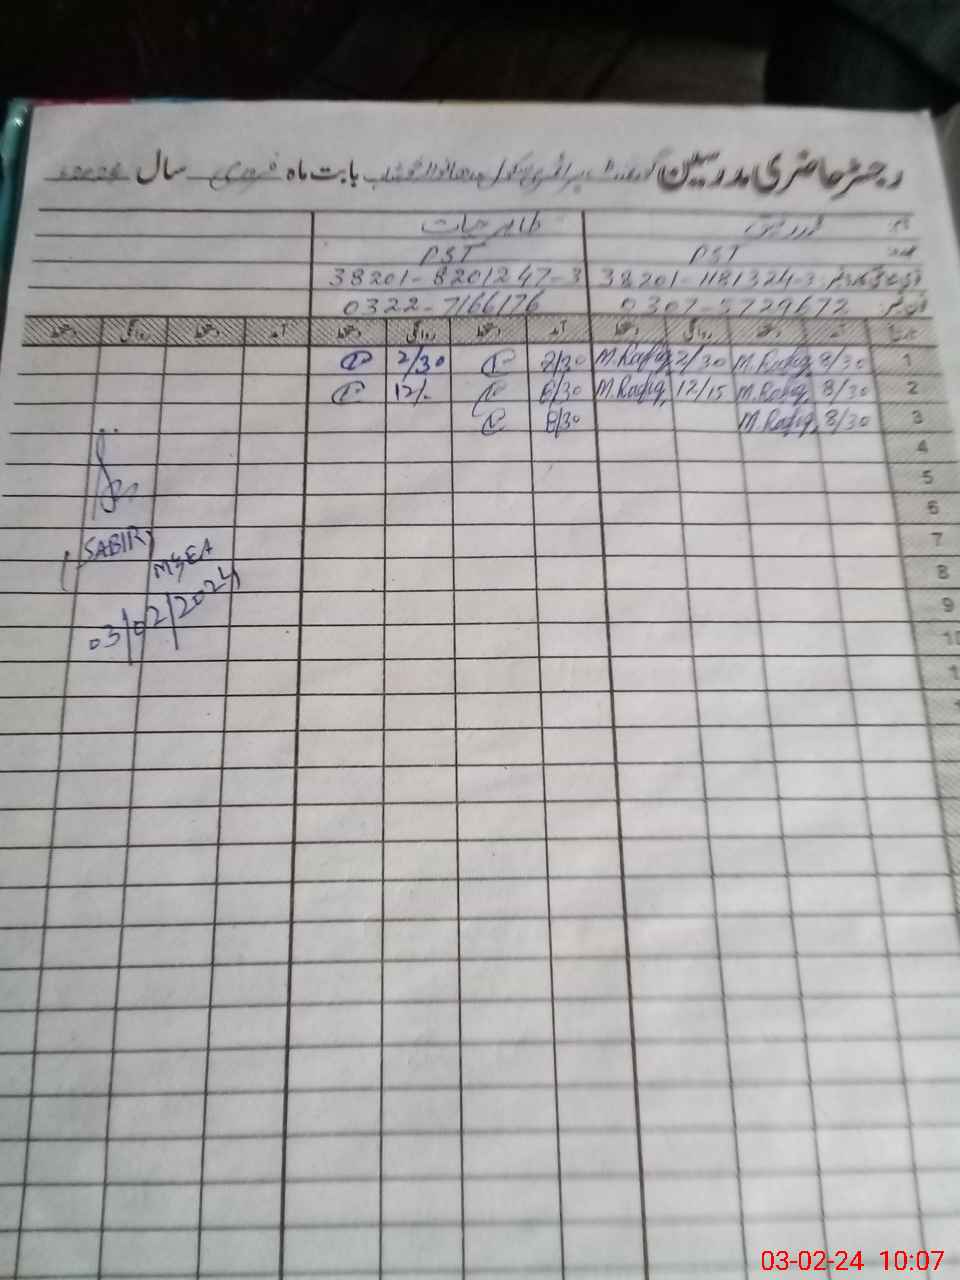 رجسٹر حاضری مدرسین گورنمنٹ پرائمری سکول بابت ماہ فروری سال
نام طاہر حیات
عہدہ PST PST
38201-1181324-3 38201-8201247-3
فون نمبر 0307-5729672 0322-7166176
تاریخ آمد دستخط روانگی دستخط آمد دستخط روانگی دستخط آمد دستخط روانگی دستخط
1 8/30 M.Rafiq 2/30 M.Rafiq 2/30
2 8/30 M.Rafiq 12/15 M.Rafiq 8/30 12/.
3 8/30 M.Rafiq 8/30
4
5
6
7
8
9
10
(SABIR)
MSEA
03/02/2024
03-02-24 10:07